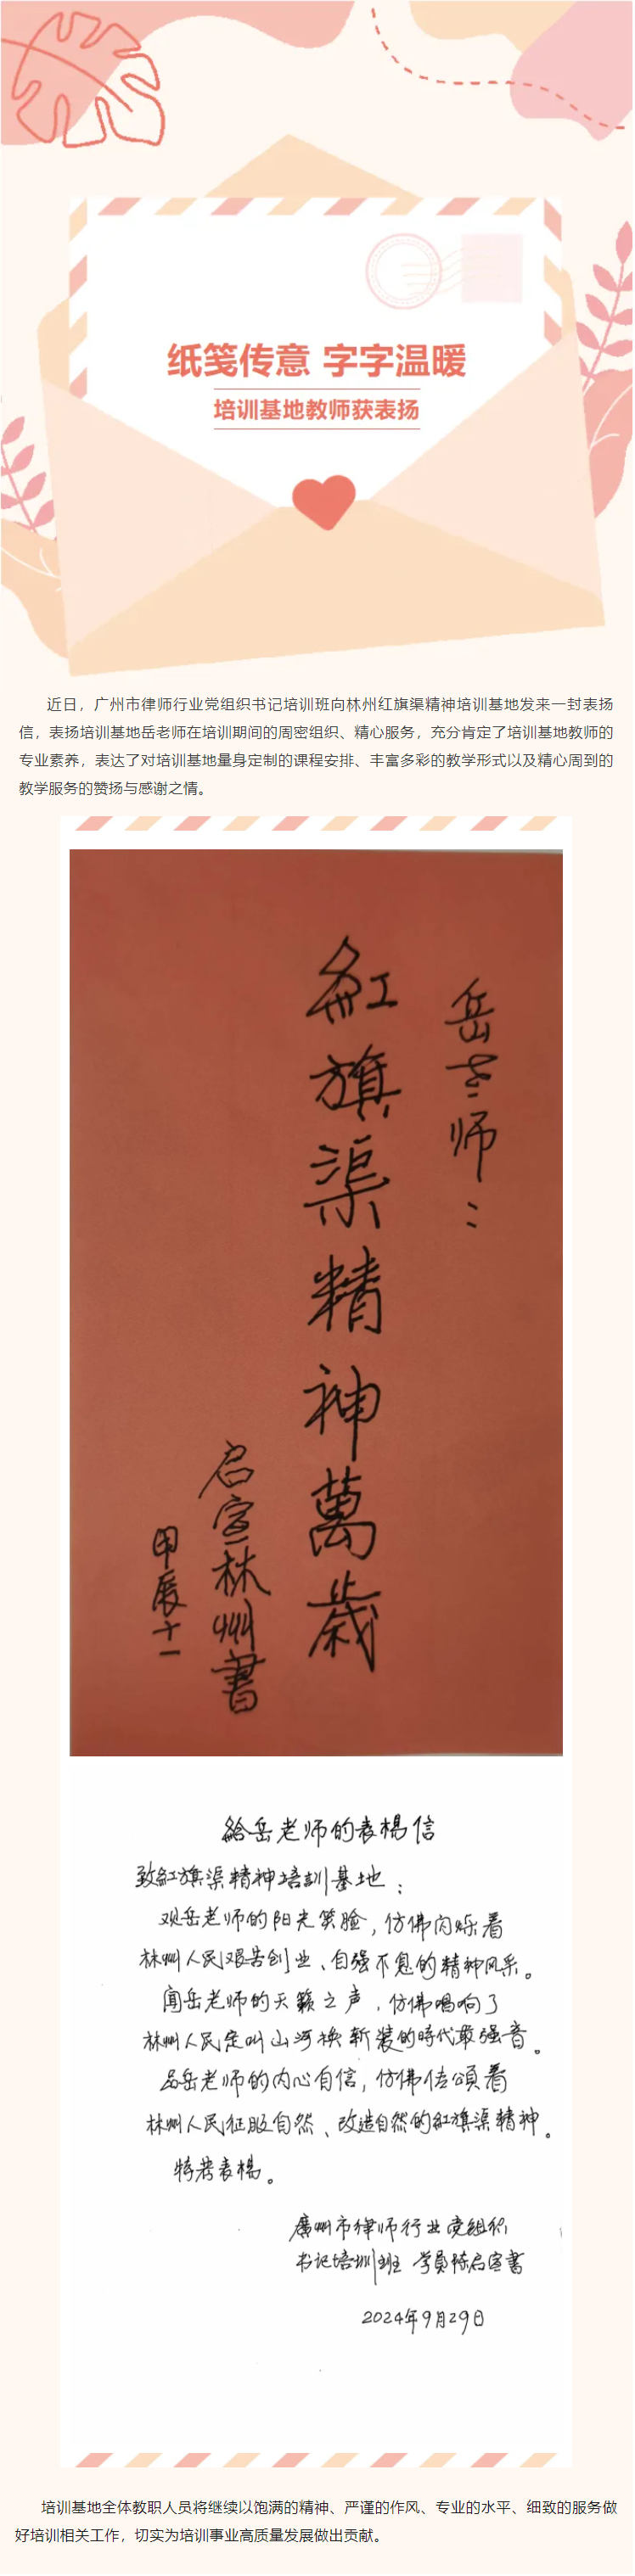 纸笺传意 字字温暖
培训基地教师获表扬
近日，广州市律师行业党组织书记培训班向林州红旗渠精神培训基地发来一封表扬
信，表扬培训基地岳老师在培训期间的周密组织、精心服务，充分肯定了培训基地教师的
专业素养，表达了对培训基地量身定制的课程安排、丰富多彩的教学形式以及精心周到的
教学服务的赞扬与感谢之情。
岳老师：
紅旗渠精神萬歲
启宣林州書
甲辰十一
給岳老师的表楊信
致紅旗渠精神培训基地：
观岳老师的阳光笑脸，仿佛闪烁着
林州人民艰苦创业、自强不息的精神风采。
闻岳老师的天籁之声，仿佛唱响了
林州人民定叫山河换新装的時代最强音。
品岳老师的内心自信，仿佛传頌着
林州人民征服自然、改造自然的紅旗渠精神。
特若表楊。
廣州市律师行业党组织
书记培训班 学員陈启宣書
2024年9月29日
培训基地全体教职人员将继续以饱满的精神、严谨的作风、专业的水平、细致的服务做
好培训相关工作，切实为培训事业高质量发展做出贡献。